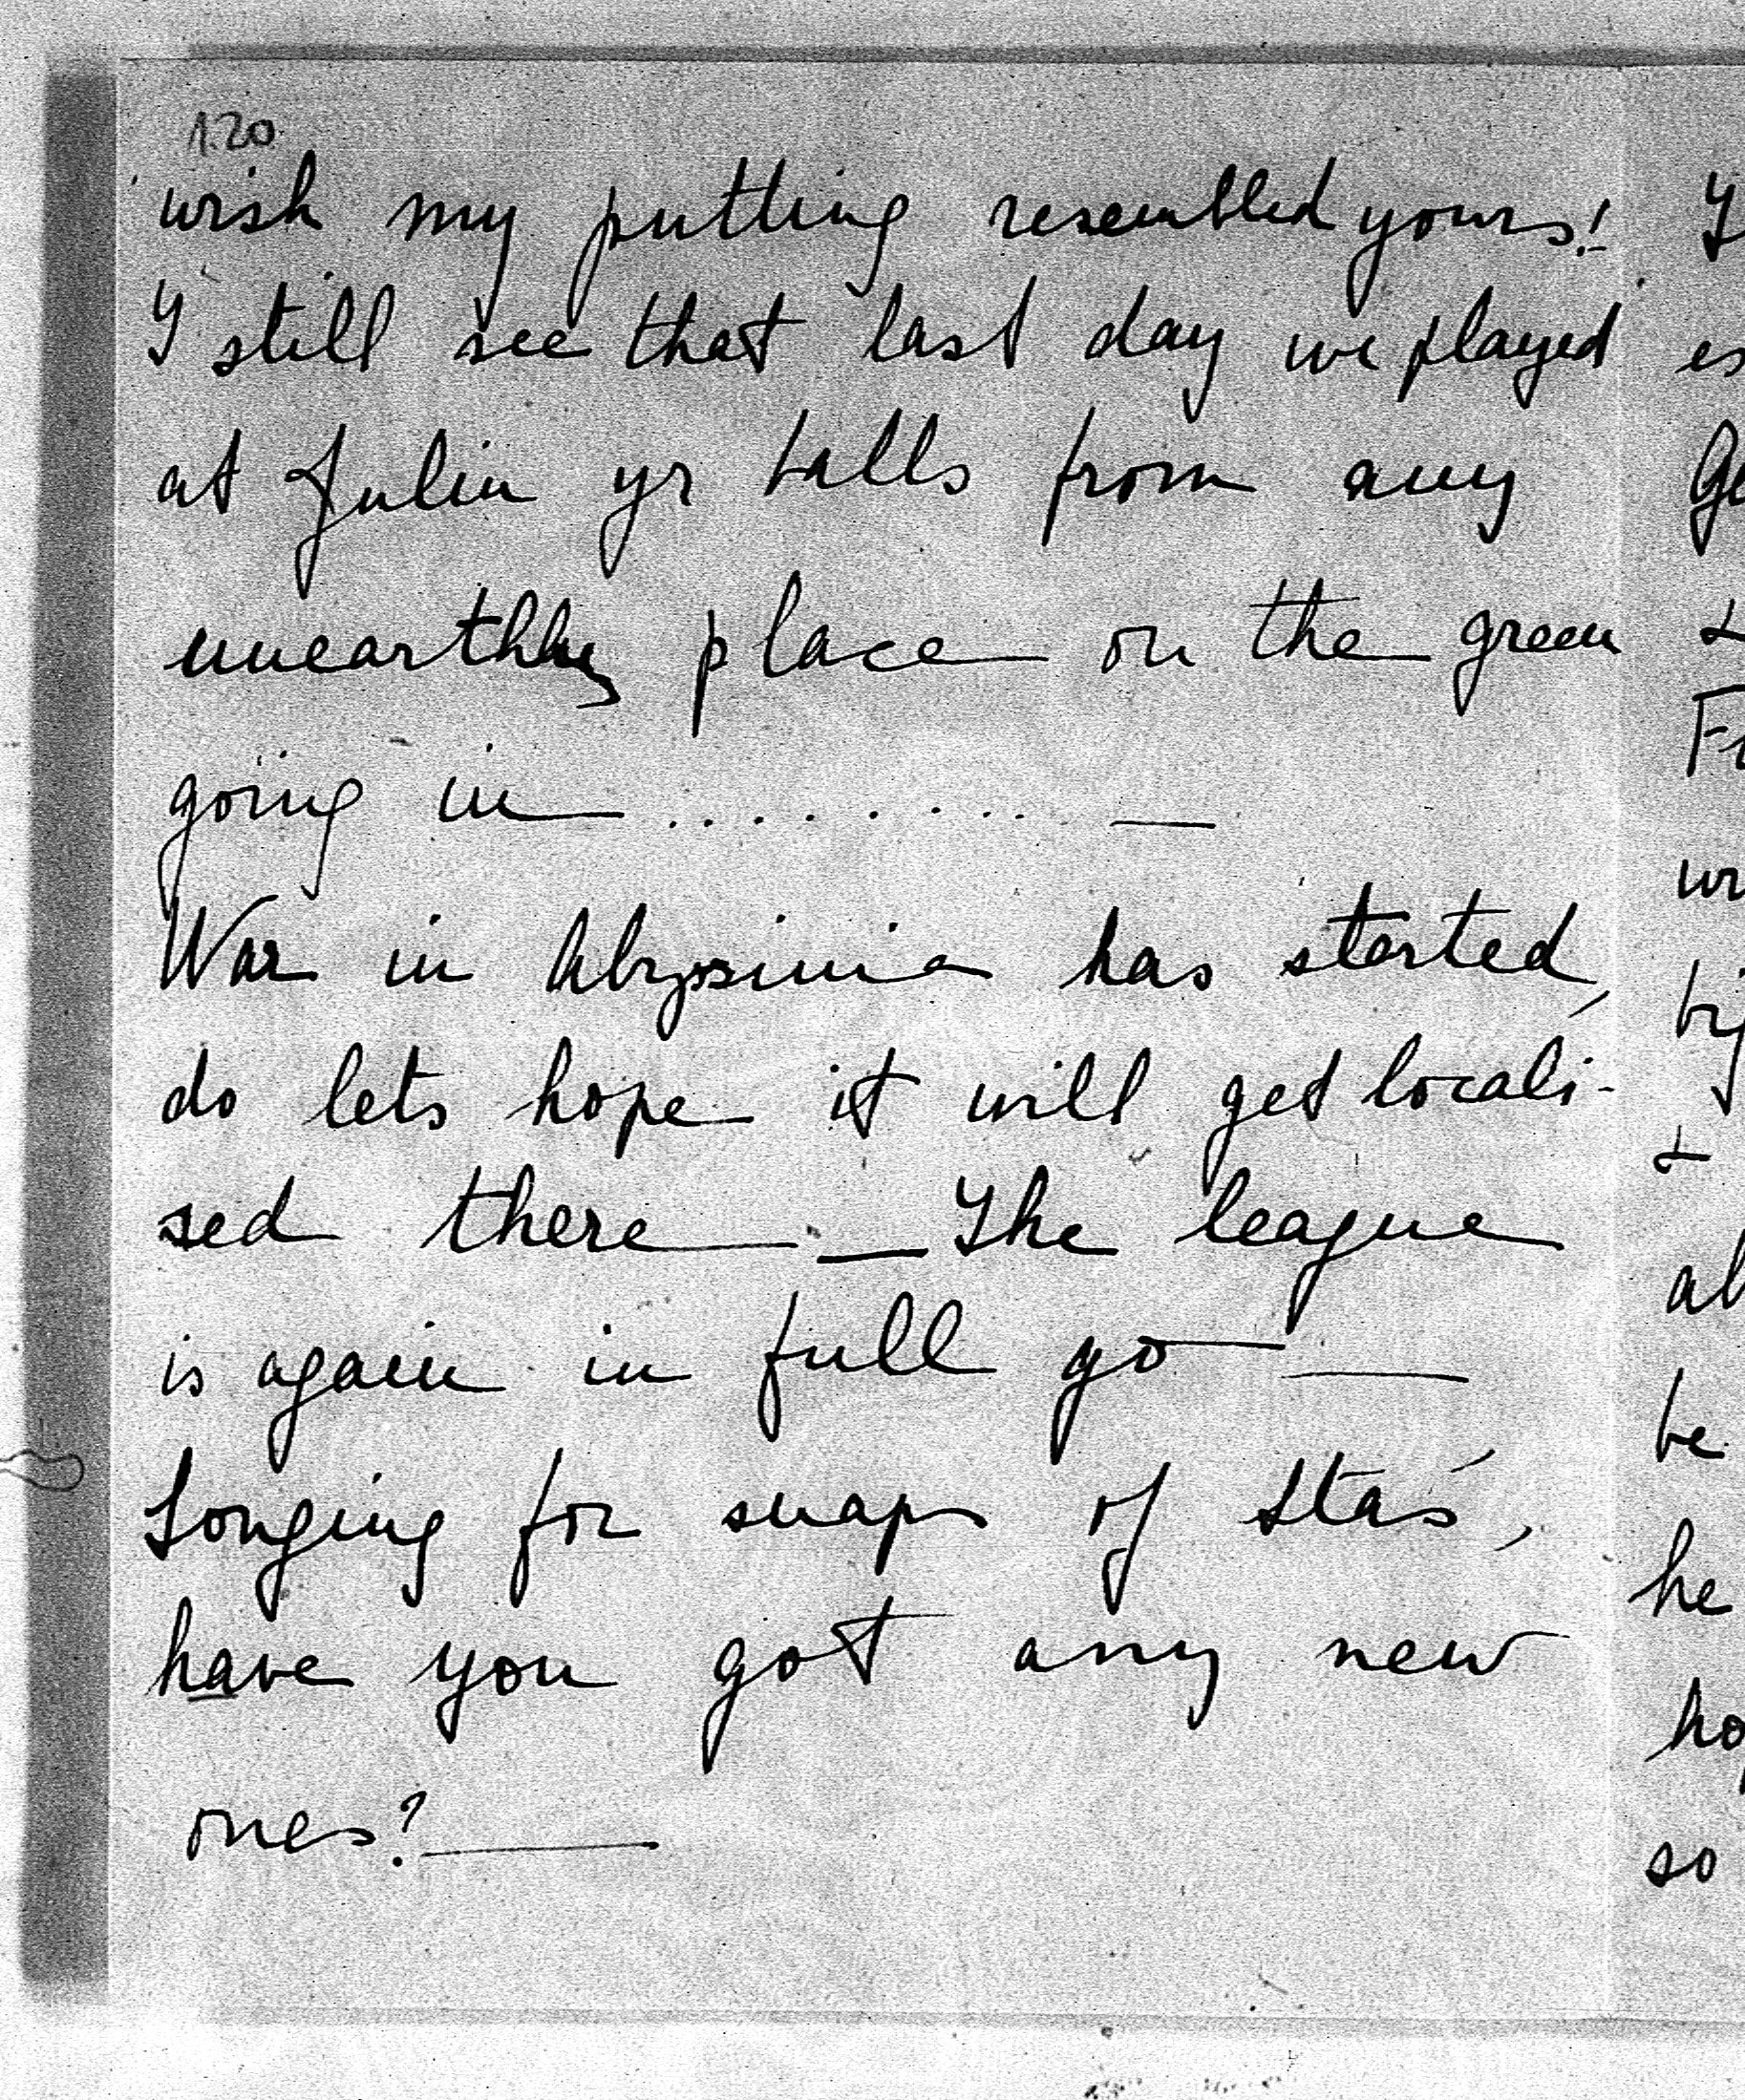 120
wish my putting resembled yours!
I still see that last day we played
at Julin yr balls from any
unearthly place on the green
going in — ......... —
War in Abyssinia has started,
do lets hope it will get locali-
sed there — The league
is again in full go —
Longing for snaps of Staś,
have you got any new
ones? —